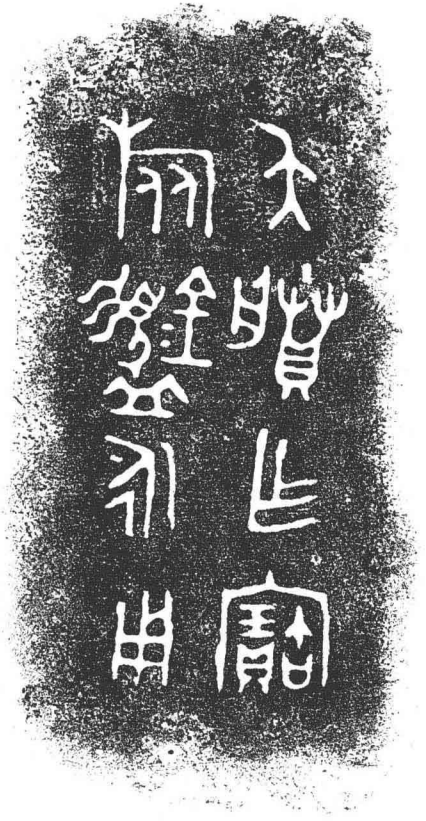 夨賸乍寶
旅盨永用